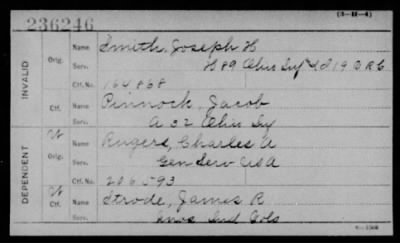 (3-H-4)
236246
INVALID
Orig.
Name Smith, Joseph H
Serv. H 89 Ohio Inf & D 19 V R C
Ctf. No. 164868
Ctf.
Name Pinnock, Jacob
Serv. A 32 Ohio Inf
DEPENDENT
W
Orig.
Name Rugers, Charles A
Serv. Gen Serv USA
Ctf. No. 206593
W
Ctf.
Name Strode, James R
Serv. Unas Ind Cols